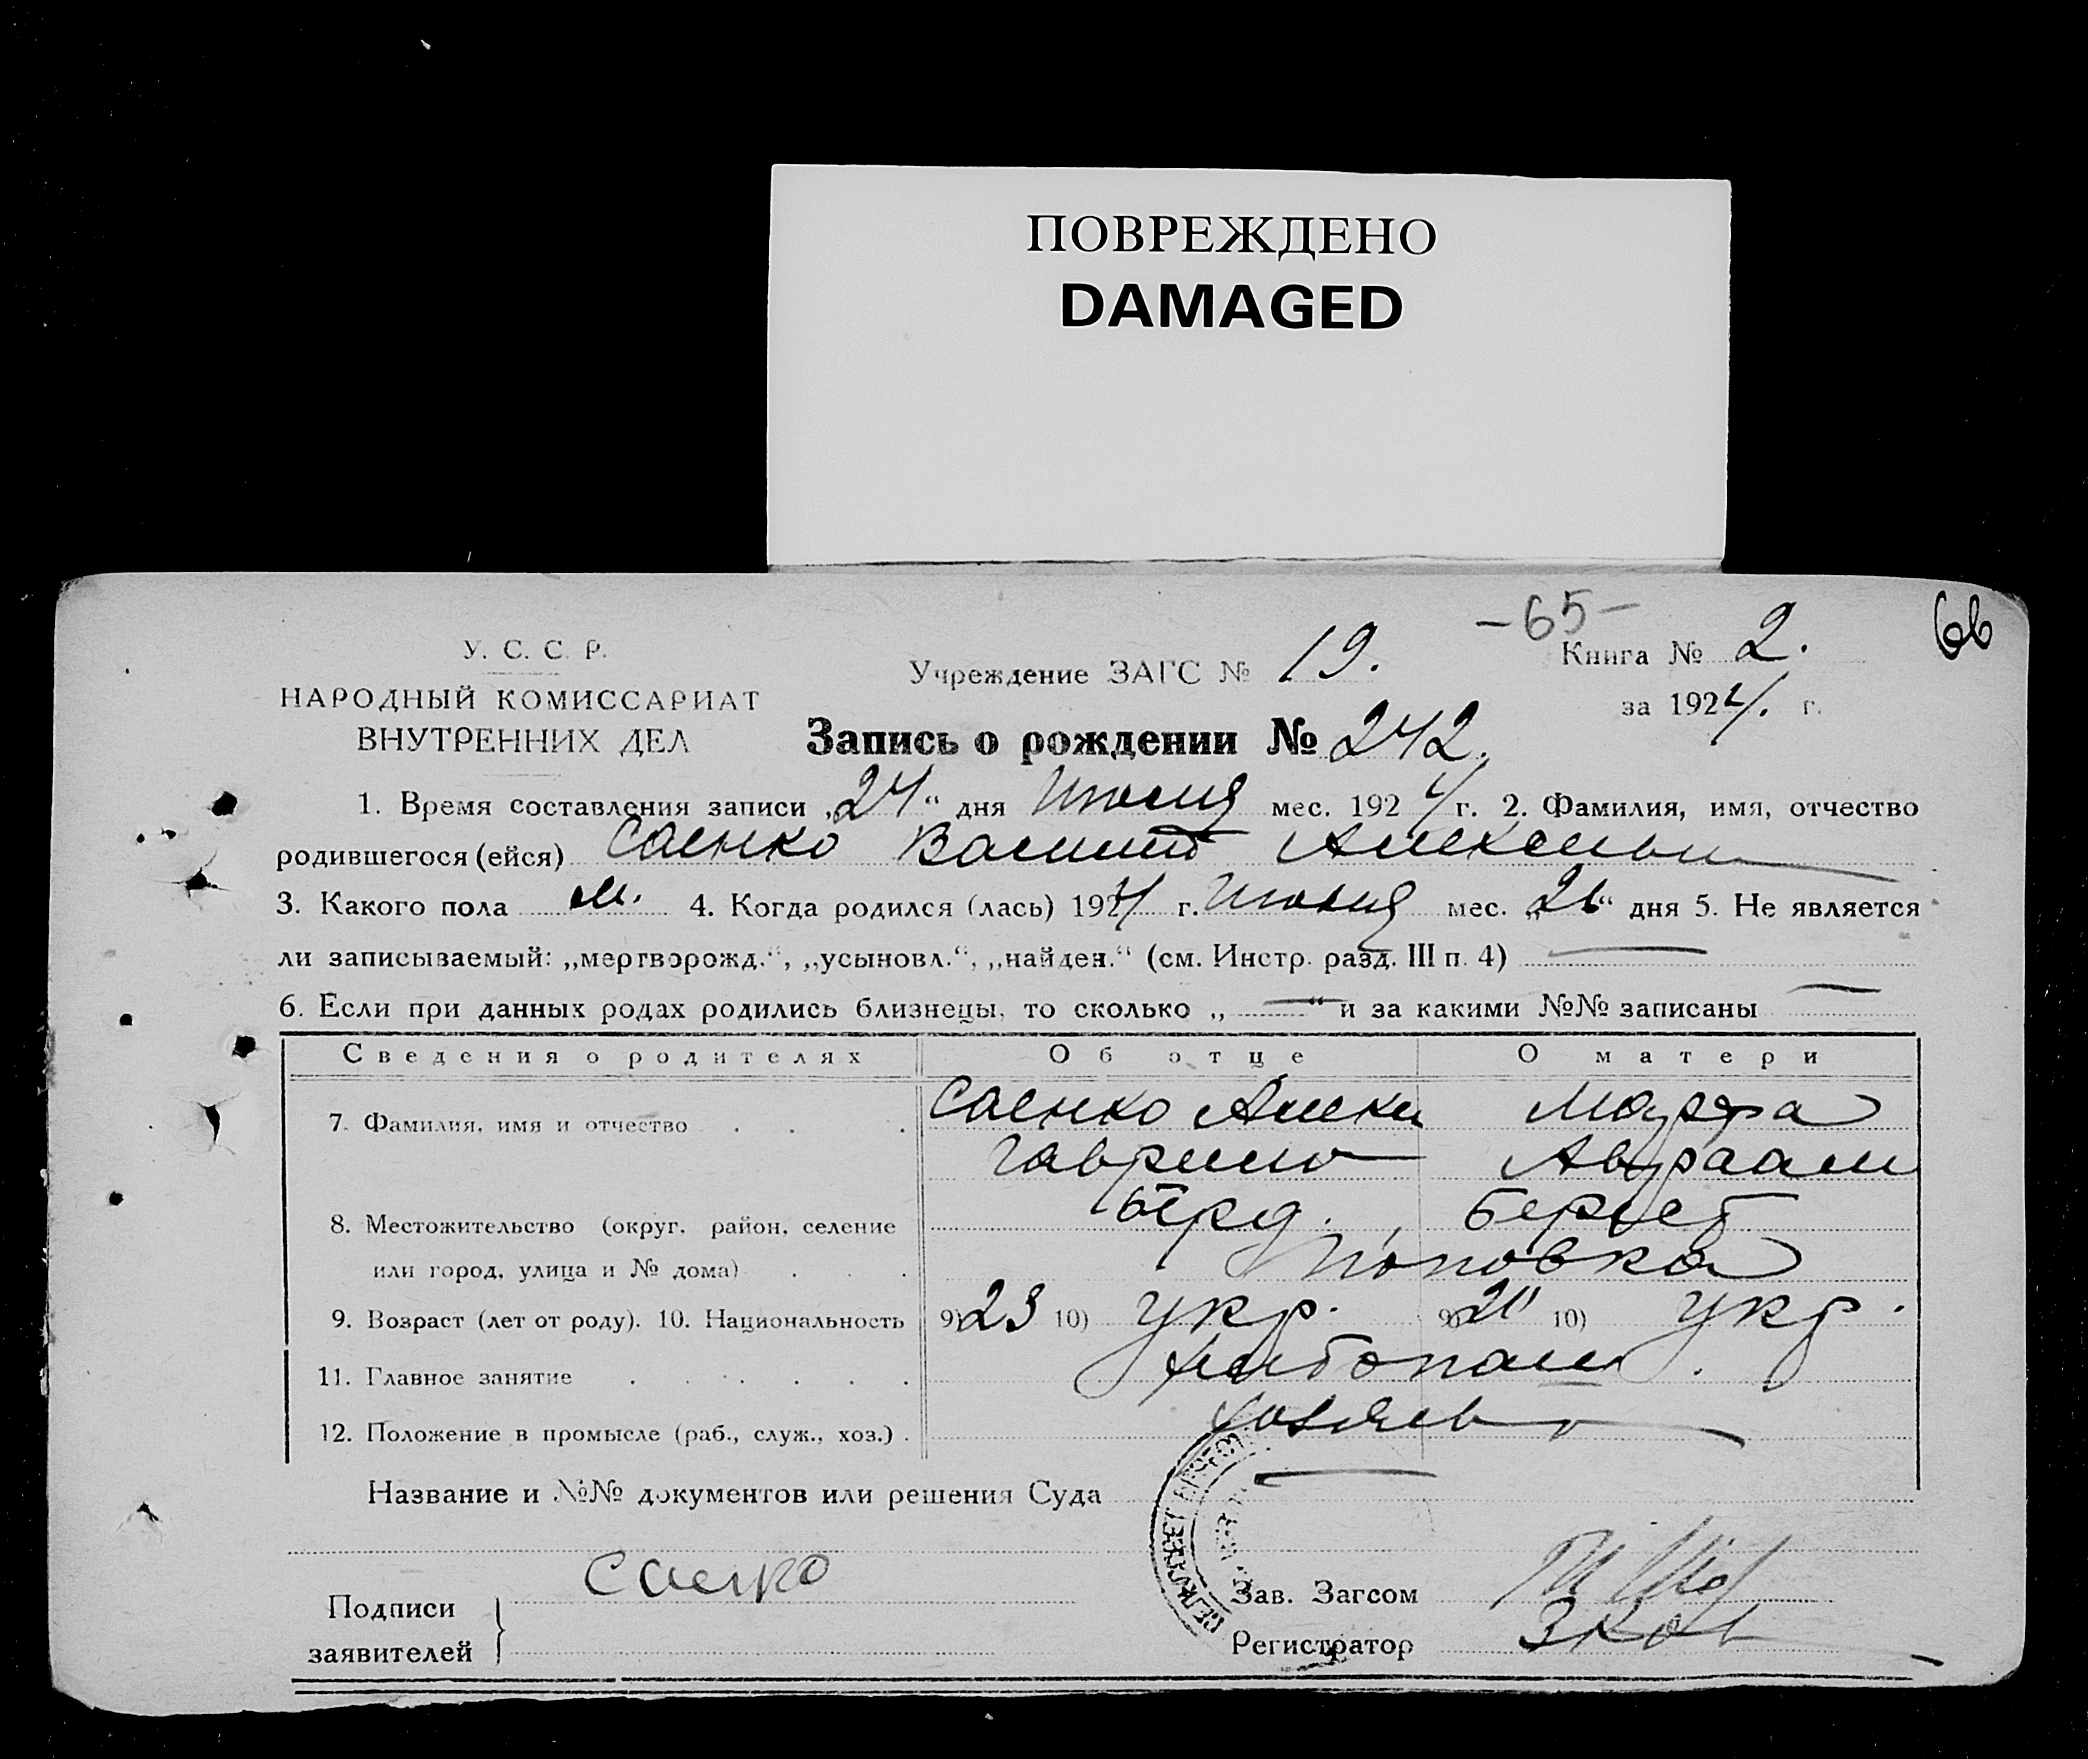 ПОВРЕЖДЕНО
DAMAGED
-65-
66
У. С. С. Р.
НАРОДНЫЙ КОМИССАРИАТ
ВНУТРЕННИХ ДЕЛ
Учреждение ЗАГС № 19.
Книга № 2.
за 1924. г.
Запись о рождении № 242.
1. Время составления записи „24“ дня Июля мес. 1924 г. 2. Фамилия, имя, отчество
родившегося (ейся) Саенко Василий
3. Какого пола м. 4. Когда родился (лась) 1924 г. Июля мес. „ “ дня 5. Не является
ли записываемый: „мертворожд.“, „усыновл.“, „найден.“ (см. Инстр. разд. III п. 4) —
6. Если при данных родах родились близнецы, то сколько „—“ и за какими №№ записаны —
Сведения о родителях Об отце О матери
7. Фамилия, имя и отчество Саенко Алекс Марфа
Гаврило Авраам
8. Местожительство (округ, район, селение Берд.
или город, улица и № дома) Поповка
9. Возраст (лет от роду). 10. Национальность 9) 23 10) укр. 9) 10) укр.
11. Главное занятие хлебопаш
12. Положение в промысле (раб., служ., хоз.)
Название и №№ документов или решения Суда —
Подписи
заявителей
Саенко
Зав. Загсом
Регистратор